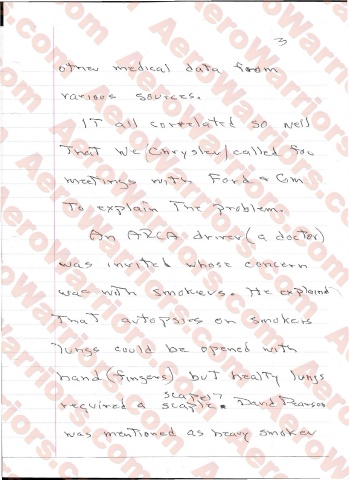 3
other medical data from
various sources.
IT all correlated so well
That We (Chrysler) called for
meetings with Ford & Gm
To explain The problem.
An ARCA driver (a doctor)
was invited whose concern
was with smokers. He explaind
That autopsies on smokers
lungs could be opened with
hand (fingers) but healty lungs
required a scalpel. David Pearson
was mentioned as heavy smoker
AeroWarriors.com